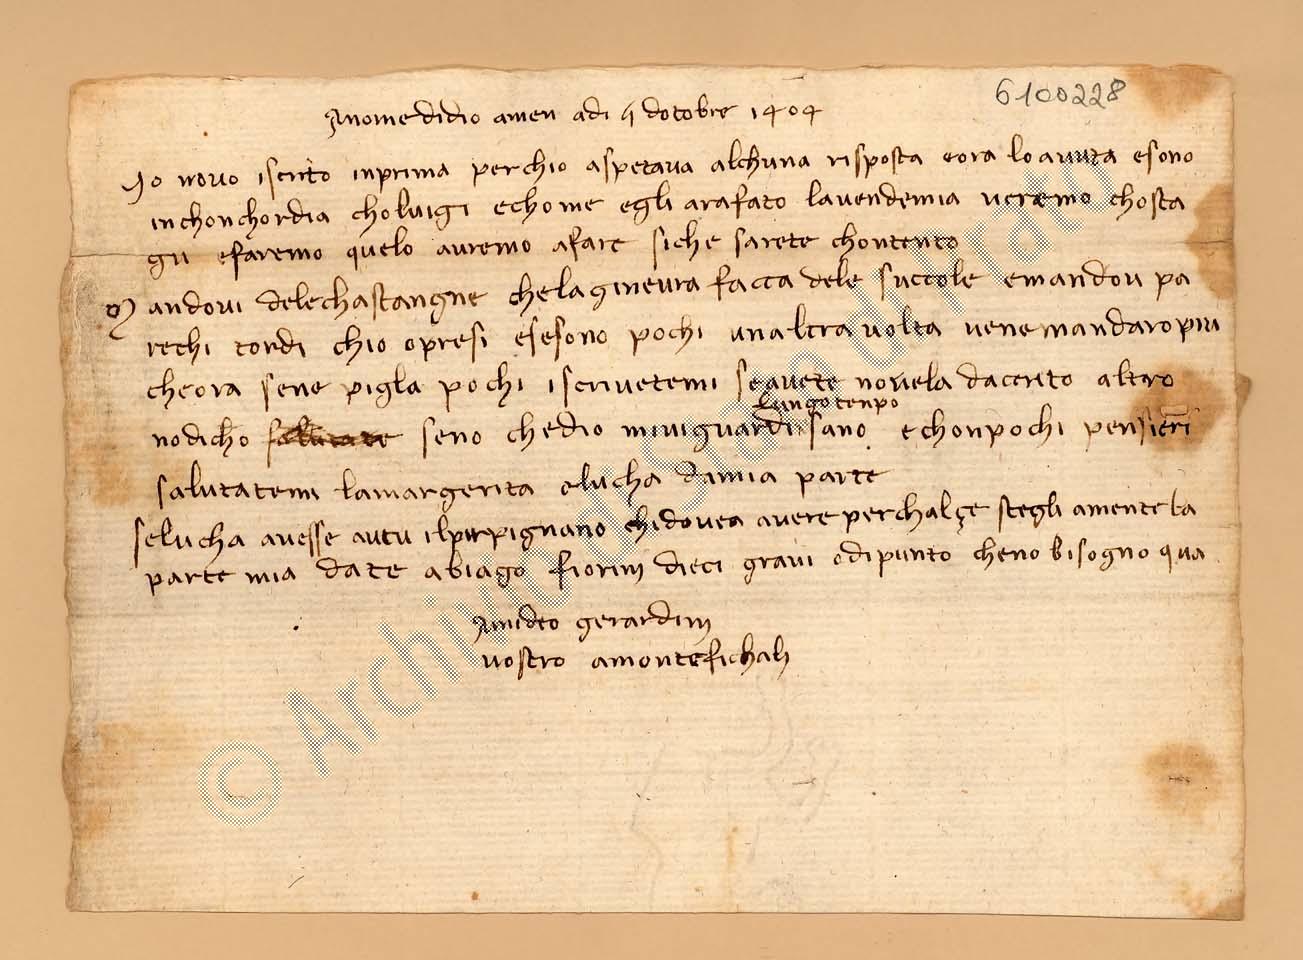 6100228
Anome didio amen adi 9 dotobre 1404
Io novo iscrito inprima perchio aspetava alchuna risposta eora lo avuta esono
inchonchordia choluigi echome egli arafato lavendemia veremo chosta
gu efaremo quelo avremo afare siche sarete chontento
Mandovi delechastangne chelaginevra facca dele succole emandovi pa
rechi tordi chio opresi esesono pochi unaltra volta vene mandaro piu
cheora sene pigla pochi iscrivetemi seavete novela dacerito altro
nodicho seno chedio mivi guardi lungo tenpo sano echonpochi pensieri
salutatemi lamargerita eLucha damia parte
seLucha avesse autu ilpirpignano chidovea avere perchalçe stegli amente La
parte mia date abiago fiorini dieci gravi edipunto cheno bisogno qua
Amideo gerardini
vostro amontefichali
© Archivio di Stato di Prato